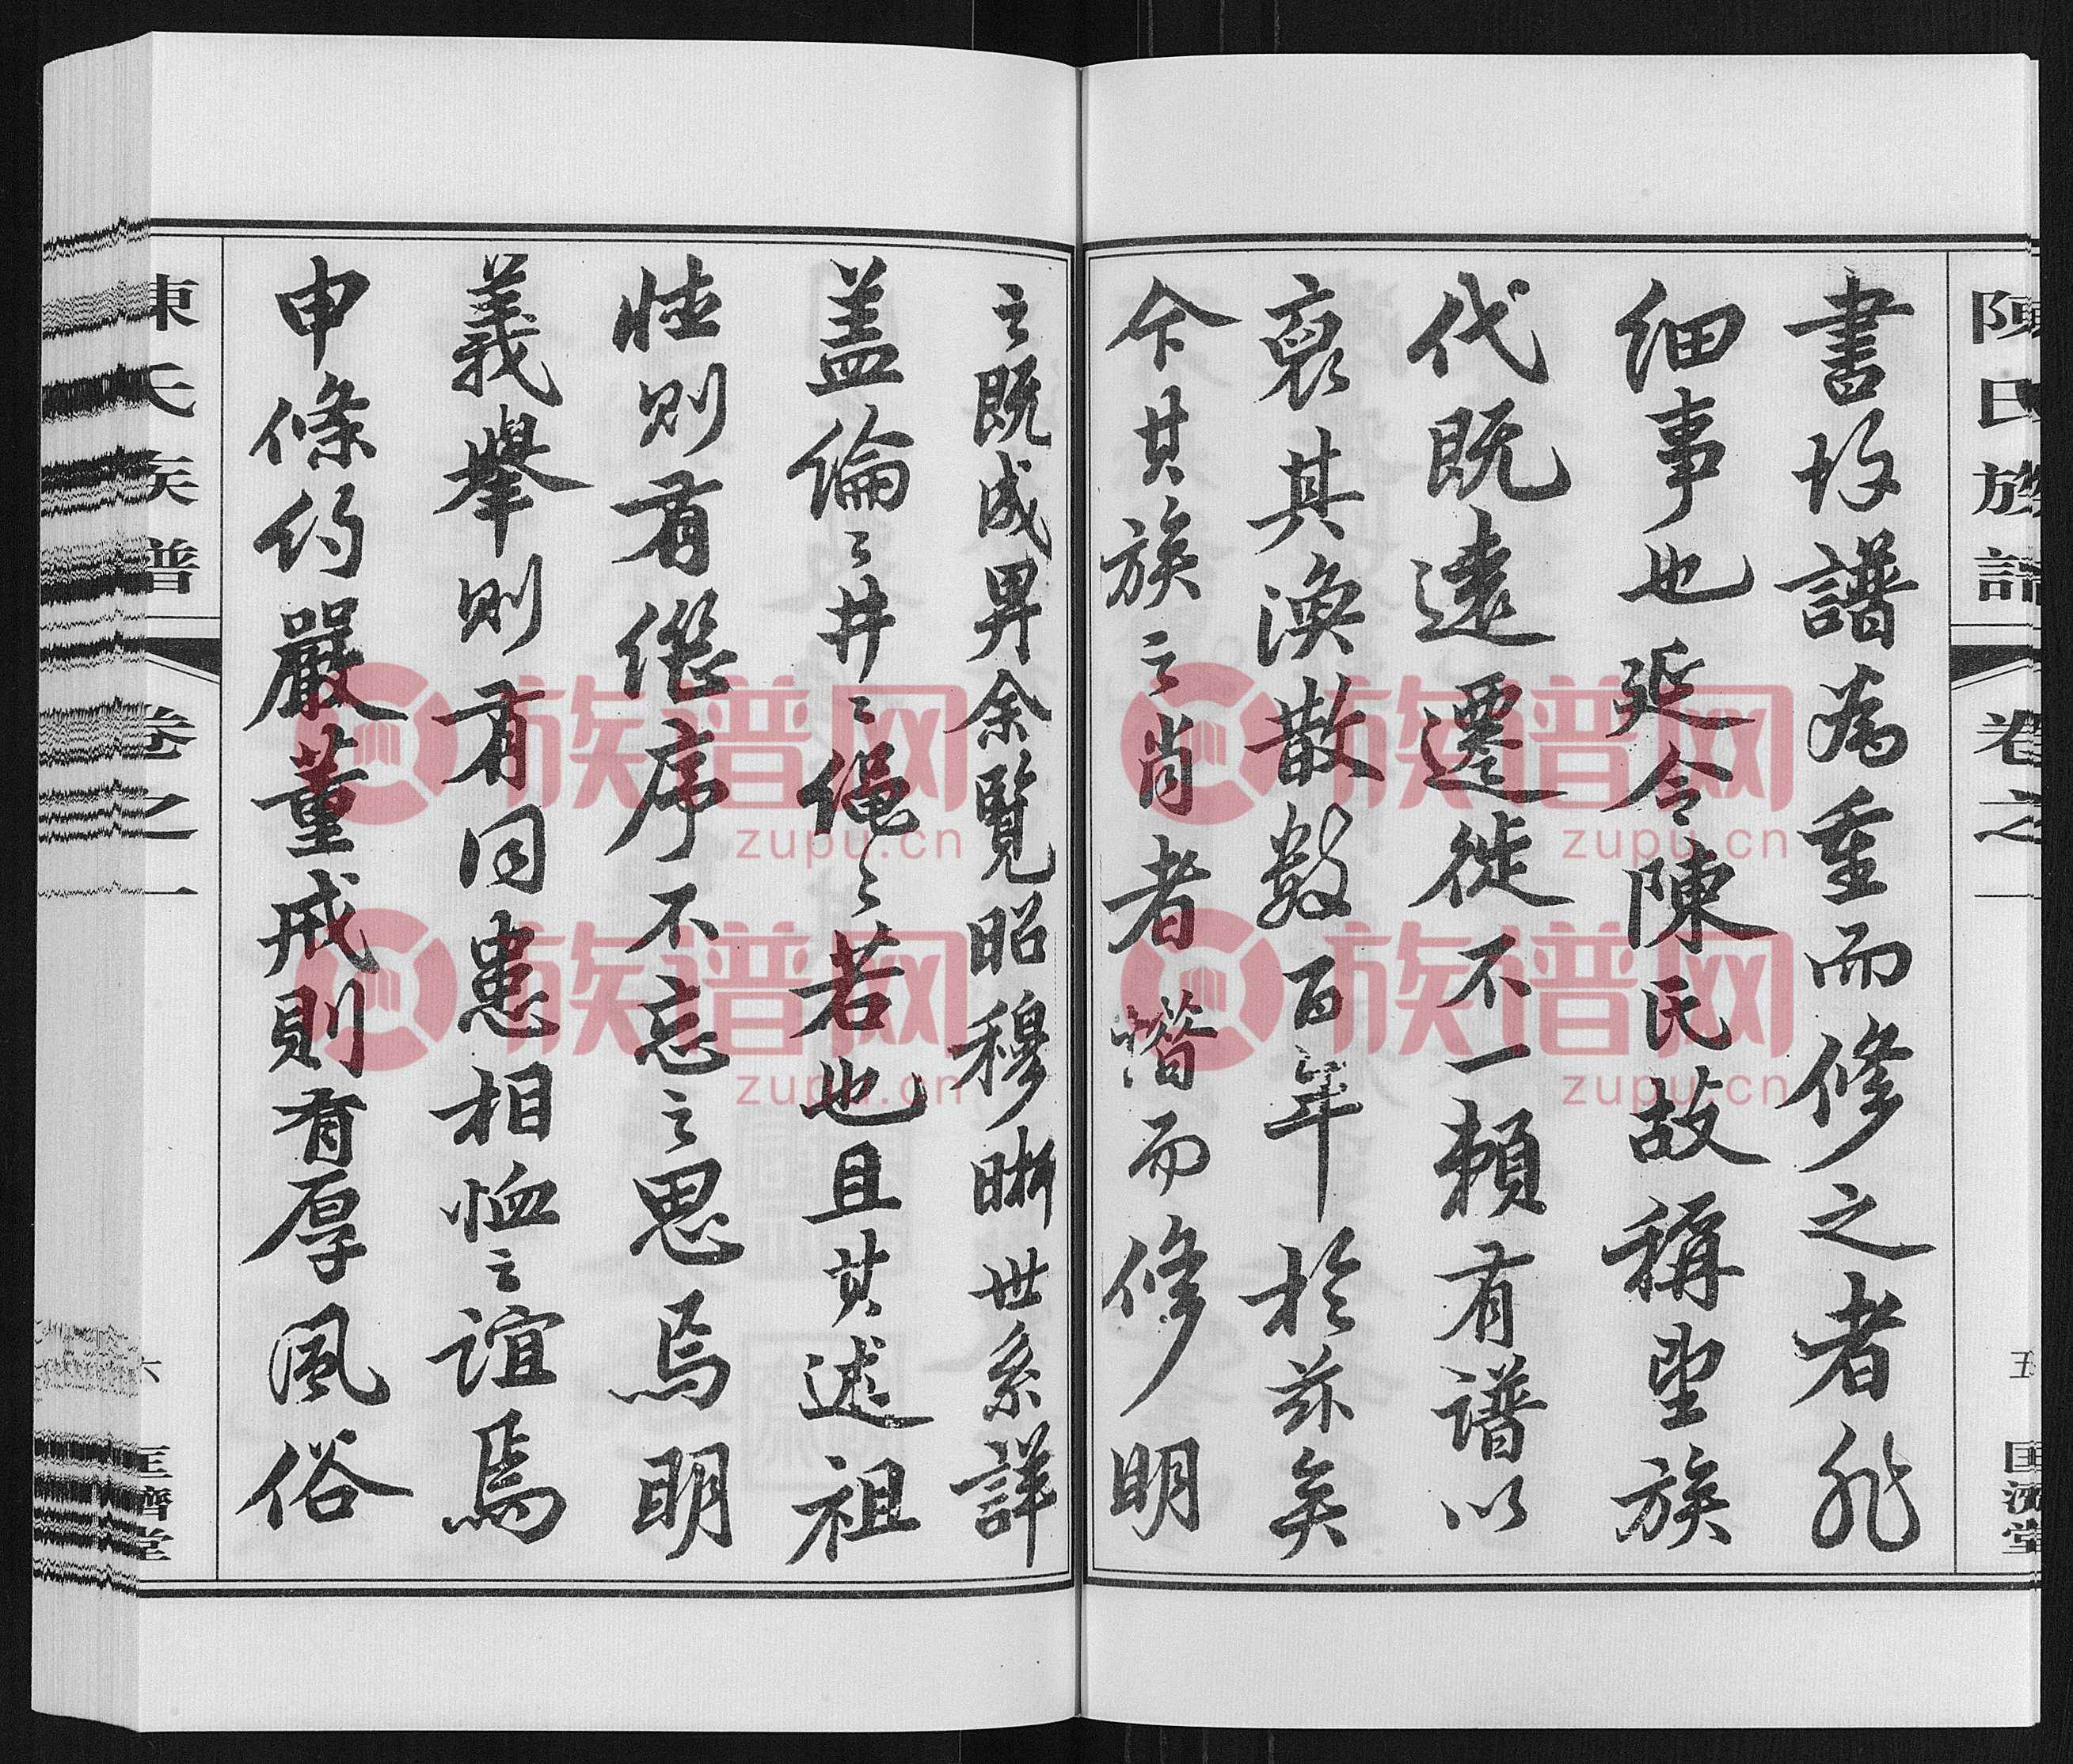 陳氏族譜 卷之一 五 匡濟堂
書故譜為重而修之者非
细事也延令陳氏故稱望族
代既遠遷徙不一賴有譜以
裒其渙散數百年於茲矣
今其族之肖者 而修明
之既成畀余覽昭穆晰世系詳
盖倫〻井〻繩〻若也且其述祖
則有繼序不忘之思焉明
義舉則有同患相恤之誼焉
申條約嚴董戒則有厚風俗
陳氏族譜 卷之一 六 匡濟堂
族谱网
zupu.cn
族谱网
zupu.cn
族谱网
zupu.cn
族谱网
zupu.cn